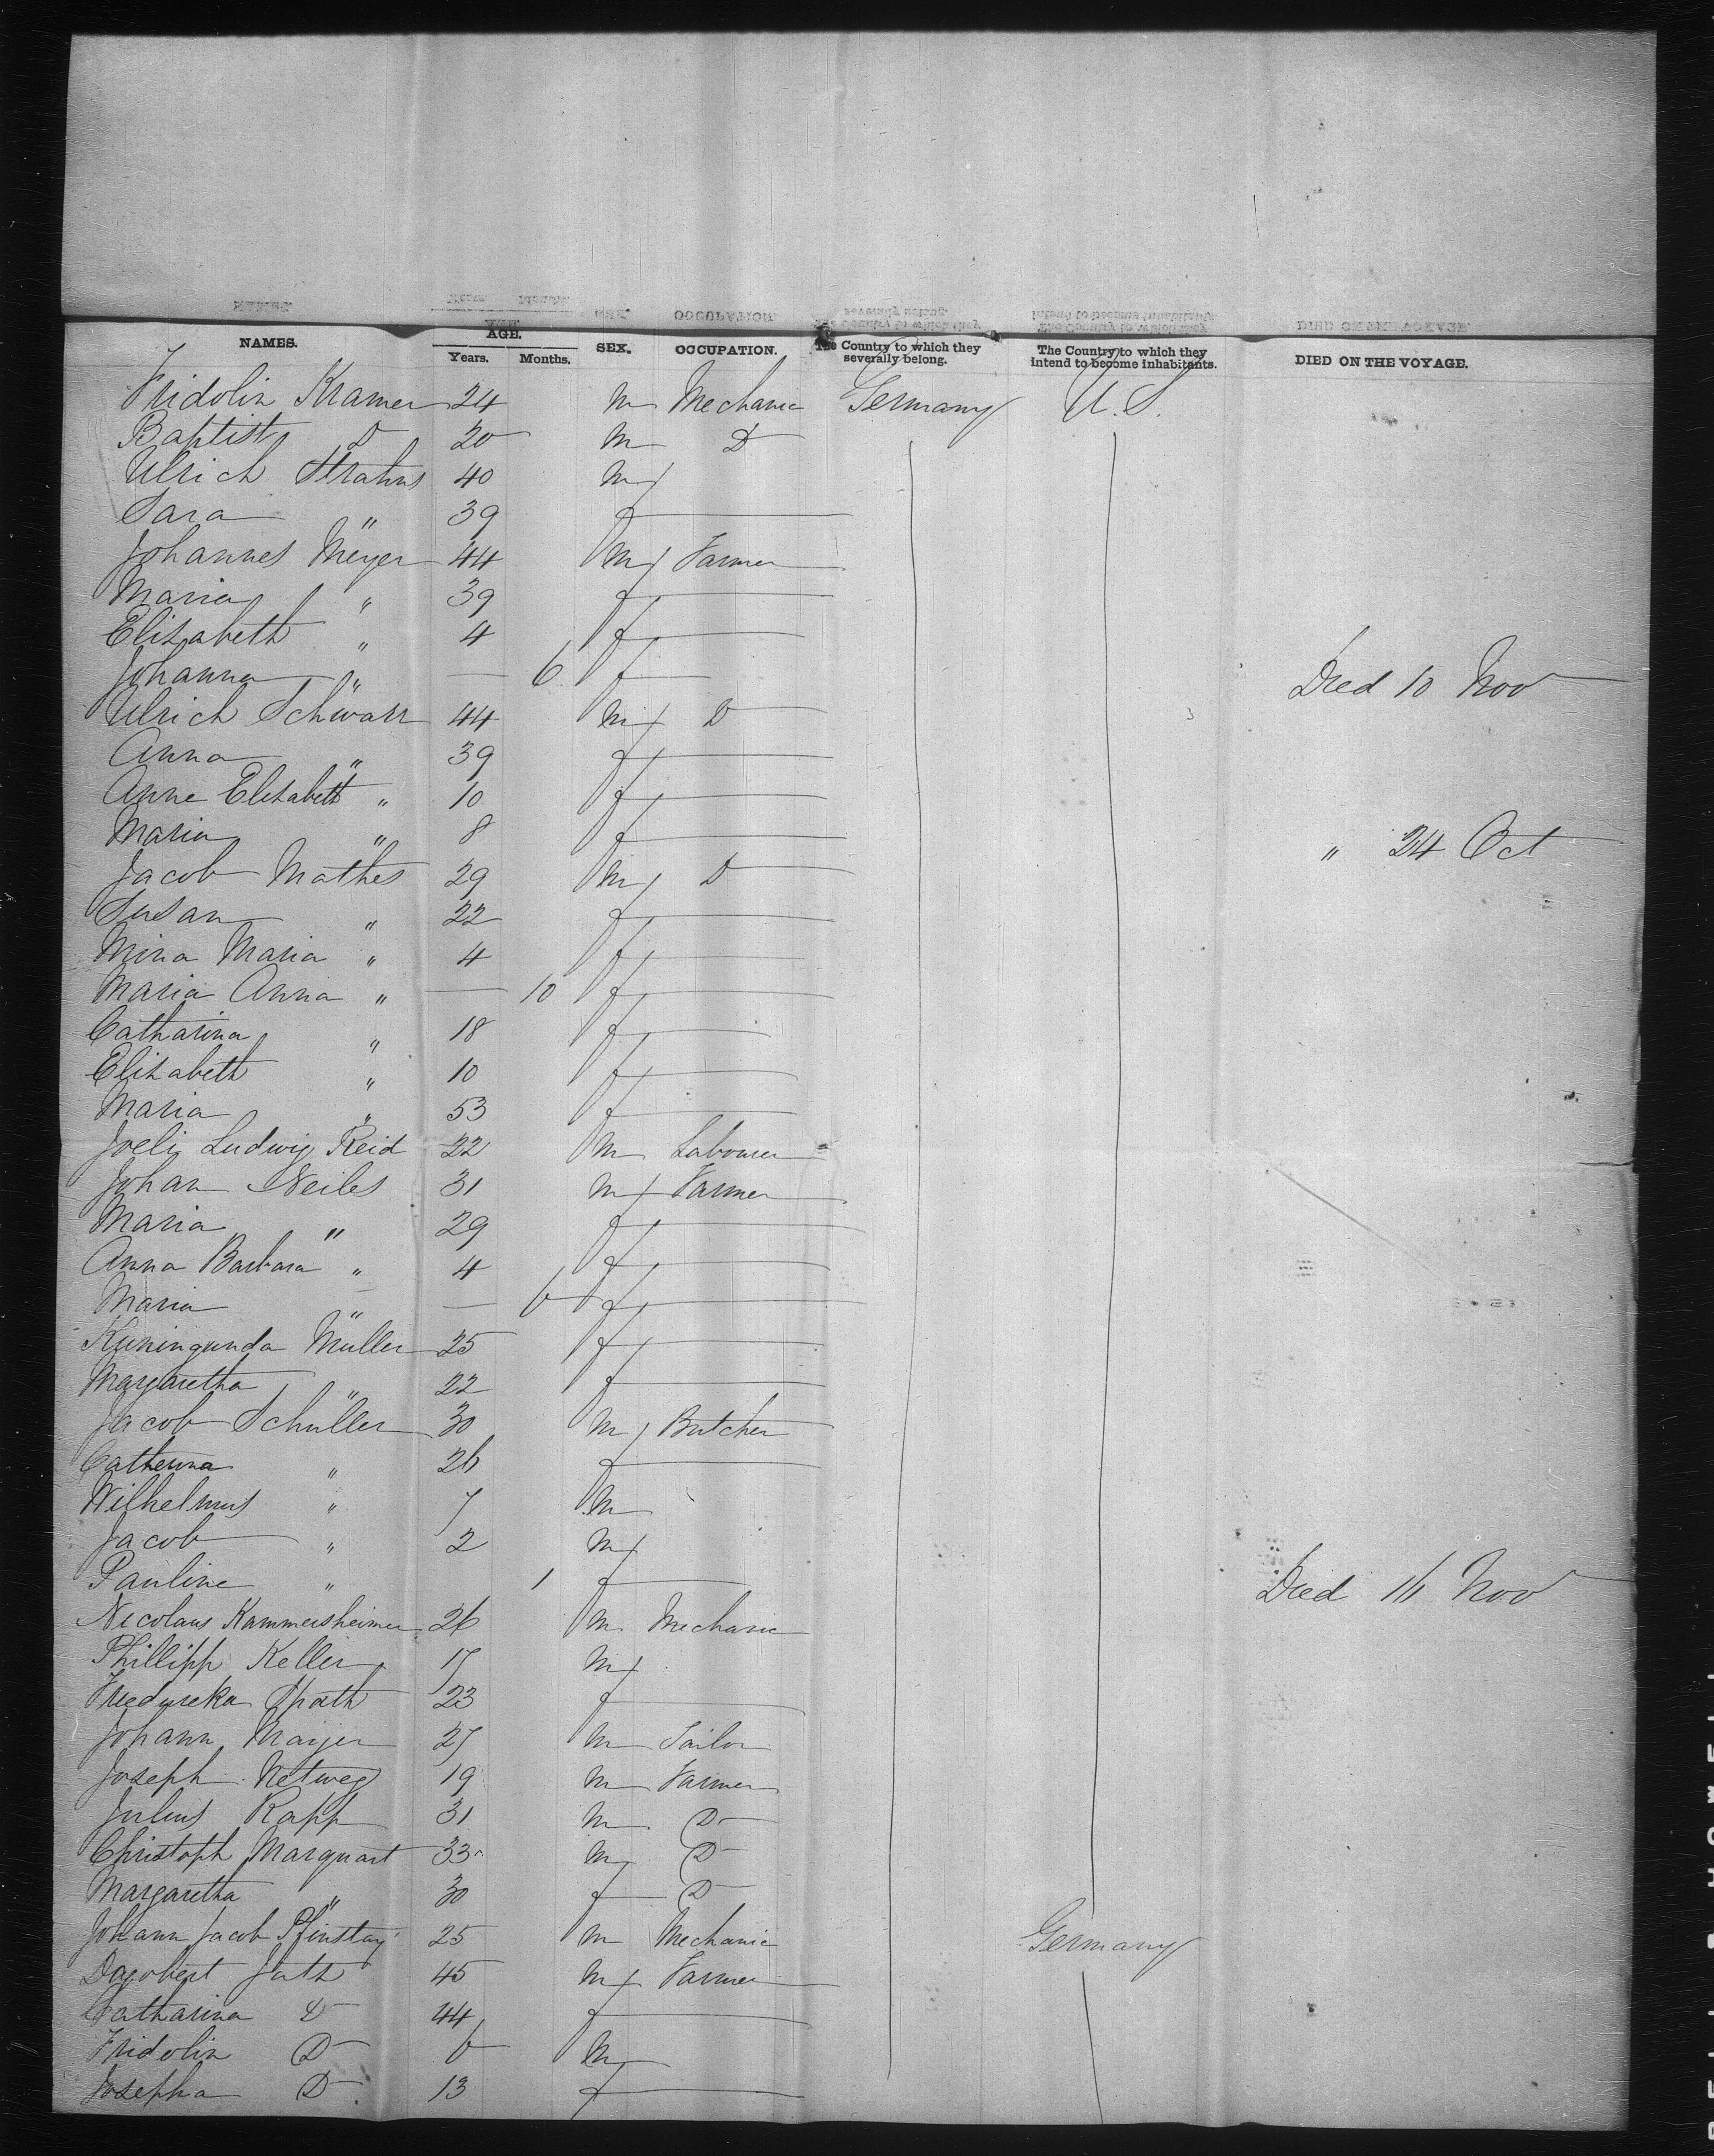 NAMES. AGE. Years. Months. SEX. OCCUPATION. The Country to which they severally belong. The Country to which they intend to become inhabitants. DIED ON THE VOYAGE.
Fridolin Kramer 24 m Mechanic Germany U.S.
Baptist D 20 m D
Ulrich 40 m
Sara " 39 f
Johannes Meyer 44 m Farmer
Maria " 39 f
Elizabeth " 4 f
Johanna " — 6 f Died 10 Nov
Ulrich Schwarz 44 m D
Anna " 39 f
Anne Elizabeth " 10 f
Maria " 8 f " 24 Oct
Jacob Mathes 29 m D
Susan " 22 f
Mina Maria " 4 f
Maria Anna " — 10 f
Catharina " 18 f
Elizabeth " 10 f
Maria " 53 f
Ludwig Reid 22 m Labourer
Johan Neiles 31 m Farmer
Maria " 29 f
Anna Barbara " 4 f
Maria " — 6 f
Kuningunda Müller 25 f
Margaretha " 22 f
Jacob Schuller 30 m Butcher
Catherina " 26 f
Wilhelmus " 7 m
Jacob " 2 m
Pauline " 1 f Died 16 Nov
Nicolaus Kammersheimer 26 m Mechanic
Phillipp Keller 17 m
Friedireka Spath 23 f
Johann Mayer 27 m Tailor
Joseph Netweg 19 m Farmer
Julius Rapp 31 m D
Christoph Marquart 33 m D
Margaretha " 30 f D
Johann Jacob Pfinstag 25 m Mechanic Germany
Dagobert 45 m Farmer
Catharina D 44 f
Fridolin D 6 m
Josepha D 13 f